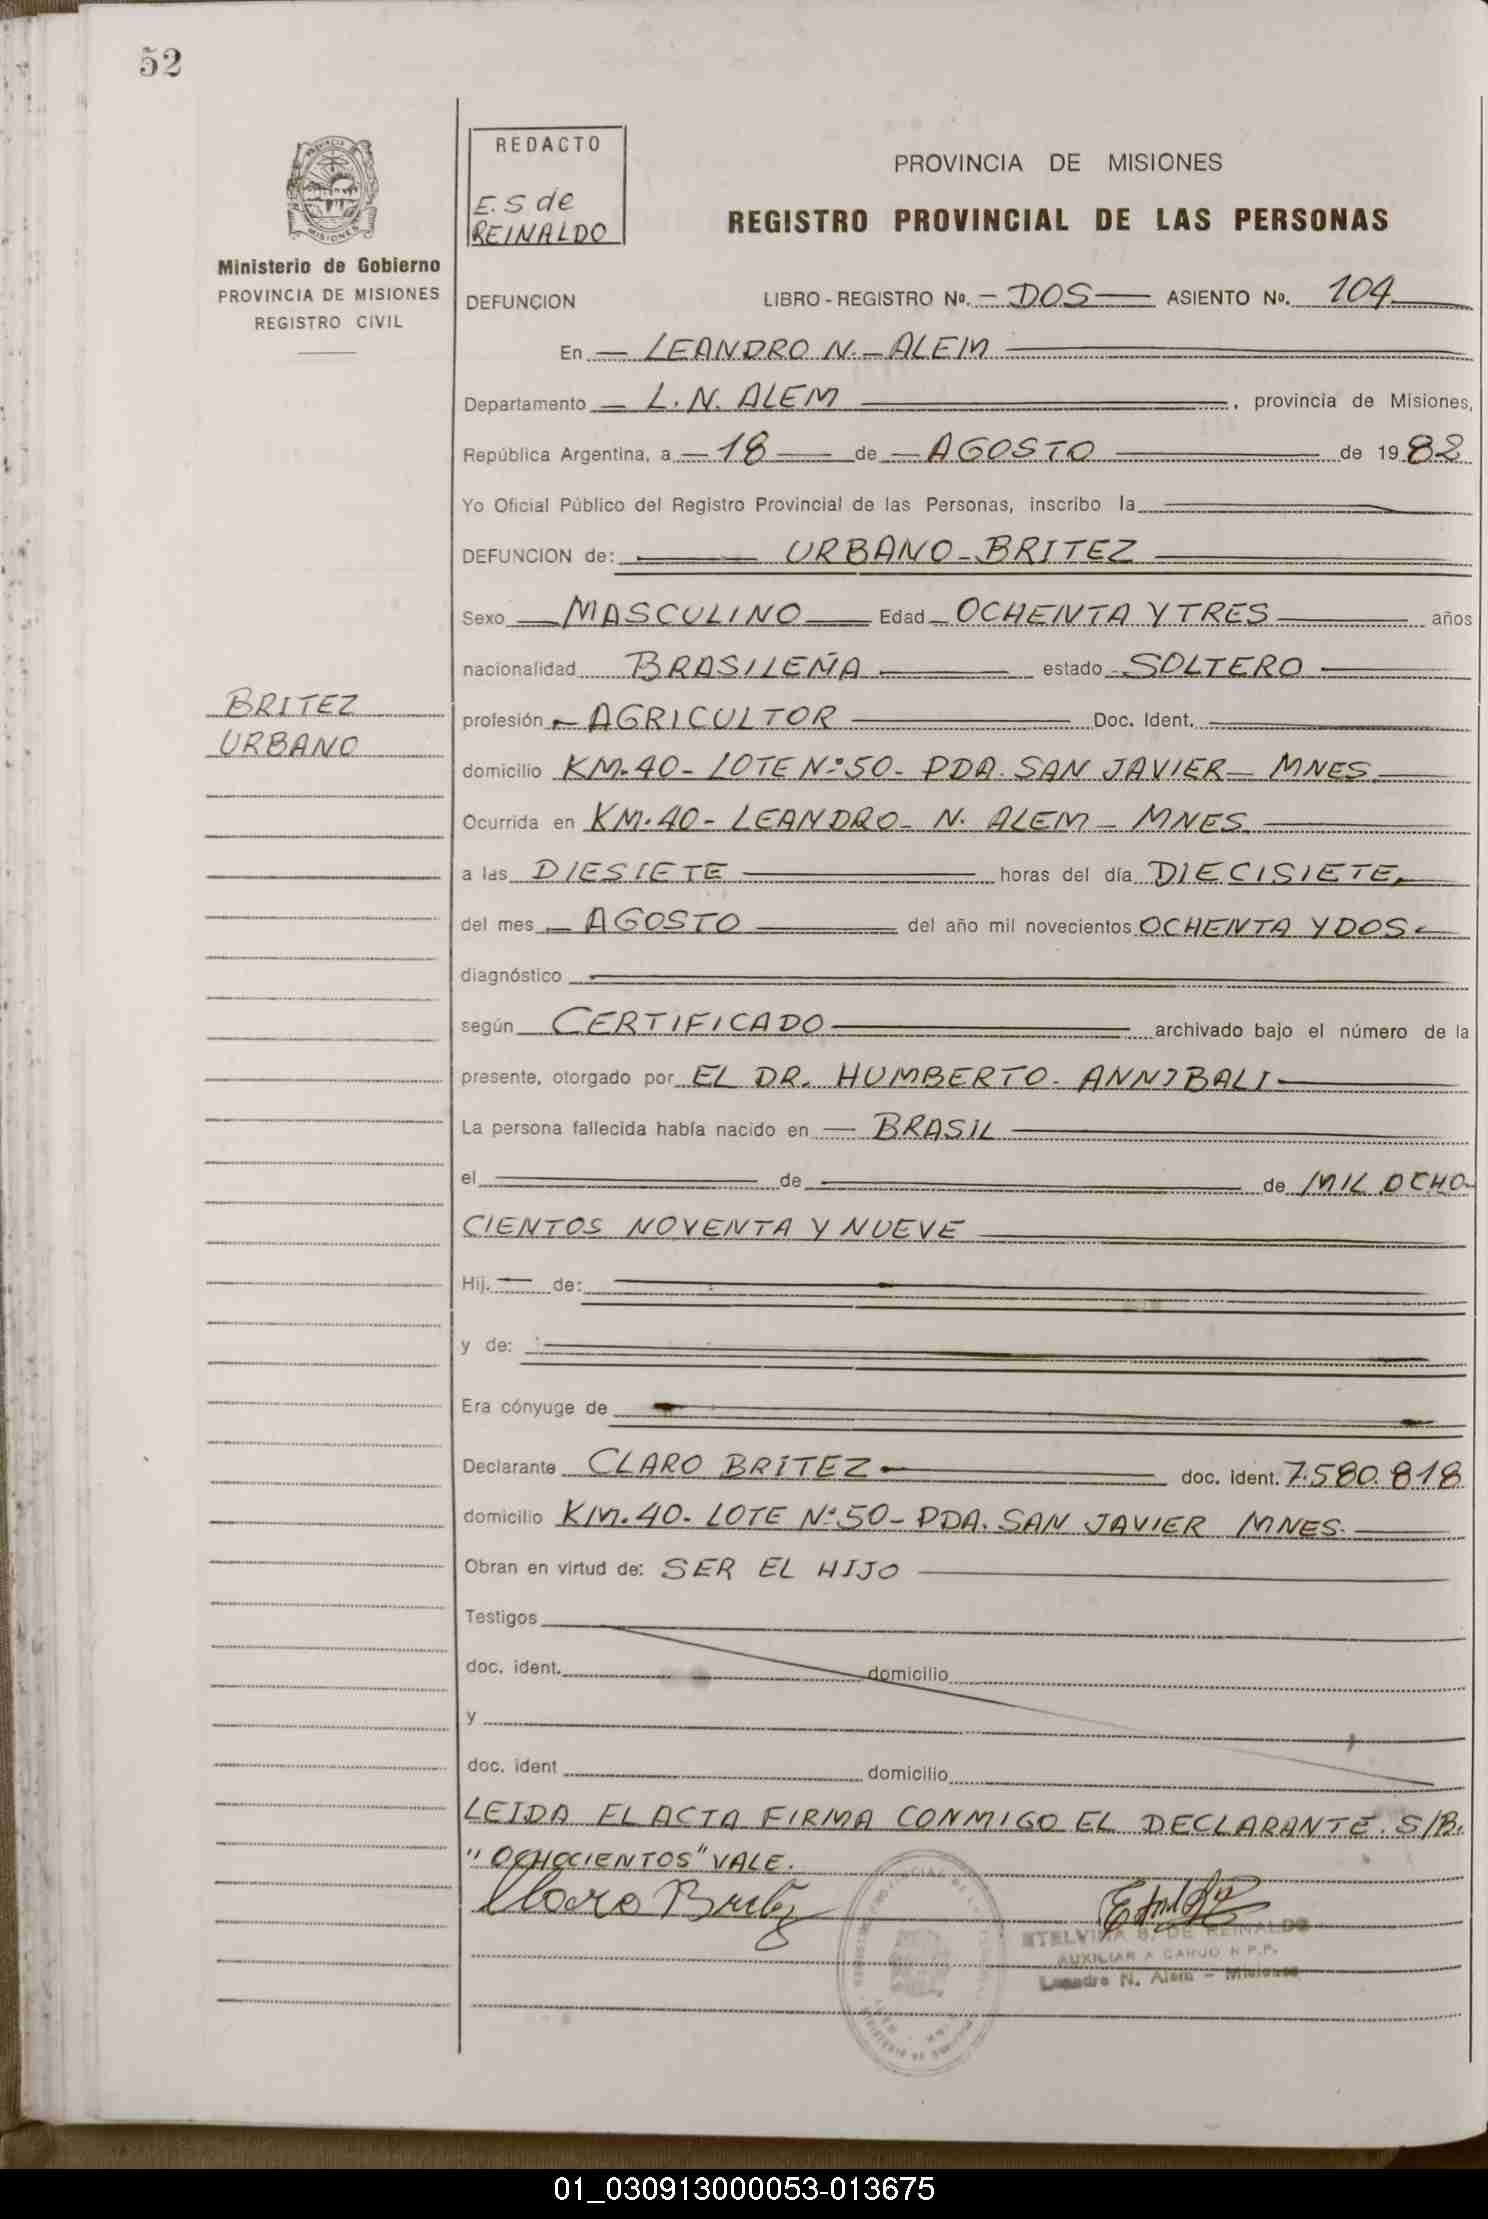 52
REDACTO
E. S de
REINALDO
Ministerio de Gobierno
PROVINCIA DE MISIONES
REGISTRO CIVIL
PROVINCIA DE MISIONES
REGISTRO PROVINCIAL DE LAS PERSONAS
DEFUNCION LIBRO - REGISTRO No. - DOS - ASIENTO No. 104
En - LEANDRO N. - ALEM
Departamento - L. N. ALEM , provincia de Misiones,
República Argentina, a - 18 - de - AGOSTO de 1982
Yo Oficial Público del Registro Provincial de las Personas, inscribo la
DEFUNCION de: URBANO - BRITEZ
Sexo MASCULINO Edad OCHENTA Y TRES años
nacionalidad BRASILEÑA estado SOLTERO
BRITEZ
URBANO
profesión AGRICULTOR Doc. Ident.
domicilio KM. 40 - LOTE Nº 50 - PDA. SAN JAVIER - MNES.
Ocurrida en KM. 40 - LEANDRO - N. ALEM - MNES.
a las DIESIETE horas del día DIECISIETE,
del mes AGOSTO del año mil novecientos OCHENTA Y DOS
diagnóstico
según CERTIFICADO archivado bajo el número de la
presente, otorgado por EL DR. HUMBERTO. ANNIBALI
La persona fallecida había nacido en - BRASIL
el de de MIL OCHO-
CIENTOS NOVENTA Y NUEVE
Hij. de:
y de:
Era cónyuge de
Declarante CLARO BRITEZ doc. ident. 7.580.818
domicilio KM. 40. LOTE Nº 50 - PDA. SAN JAVIER MNES.
Obran en virtud de: SER EL HIJO
Testigos
doc. ident. domicilio
y
doc. ident domicilio
LEIDA EL ACTA FIRMA CONMIGO EL DECLARANTE. S/B.
"OCHOCIENTOS" VALE.
Claro Britez
ETELVINA S. DE REINALDO
AUXILIAR A CARGO R.P.P.
Leandro N. Alem - Misiones
01_030913000053-013675